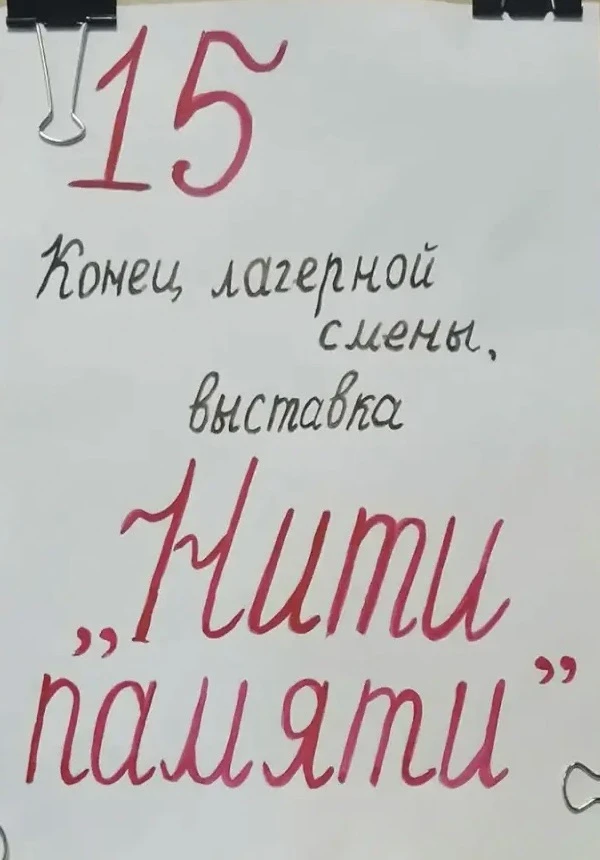 15
Конец лагерной
смены,
выставка
„Нити
памяти”